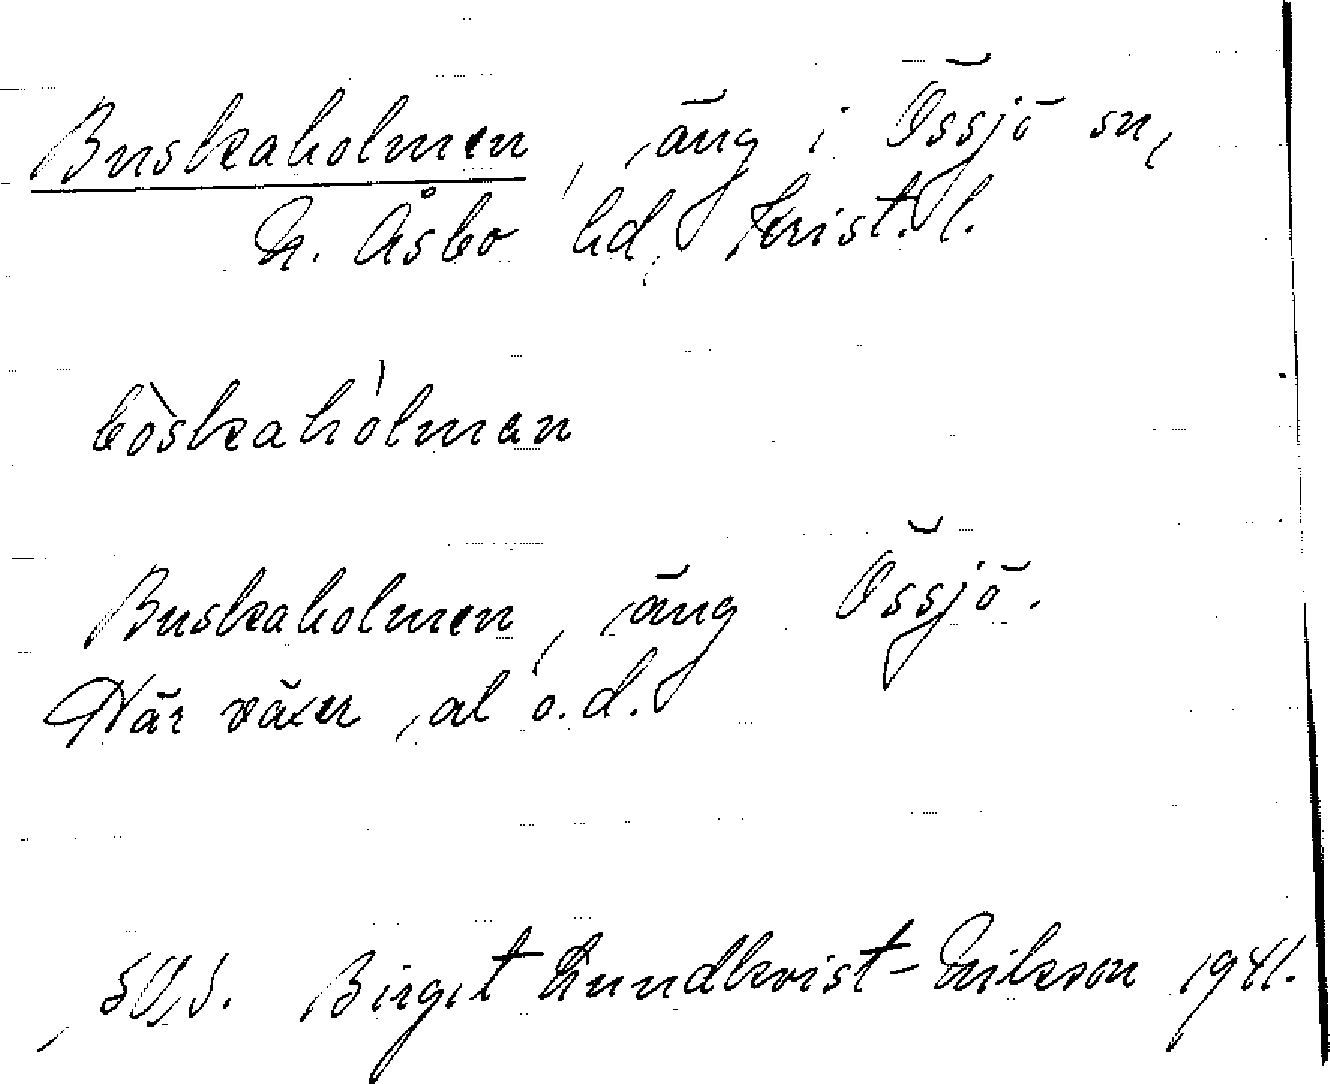 Buskaholmen, äng i Össjö sn,
N. Åsbo hd, Krist. l.
bòskahólmαn
Buskaholmen, äng Össjö.
Här växer al o.d.
Birget Lundkvist-Erikson 1941.